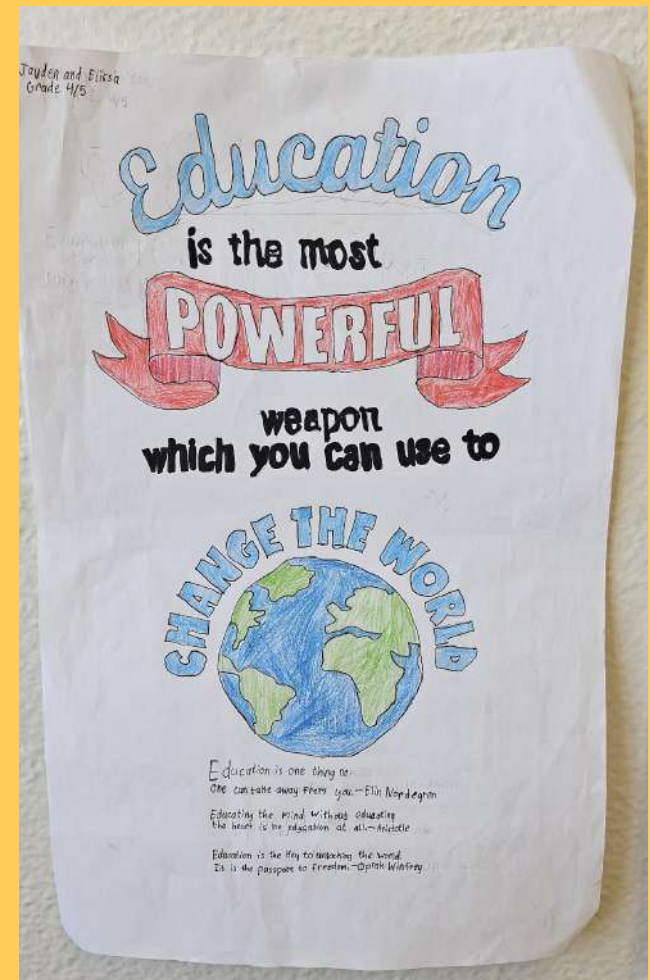 Jayden and Elissa
Grade 4/5
Education
is the most
POWERFUL
weapon
which you can use to
CHANGE THE WORLD
Education is one thing no
one can take away from you.—Elin Nordegren
Educating the mind without educating
the heart is no education at all.—Aristotle
Education is the key to unlocking the world.
It is the passport to freedom.—Oprah Winfrey